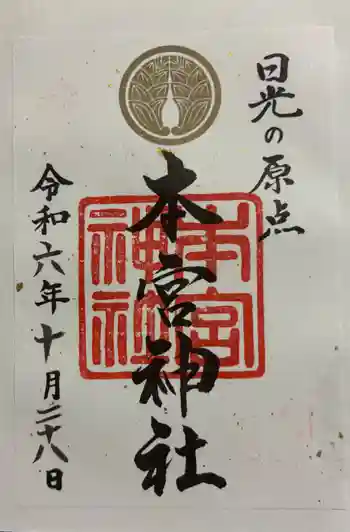 日光の原点
本宮神社
本宮
神社
令和六年十月二十八日